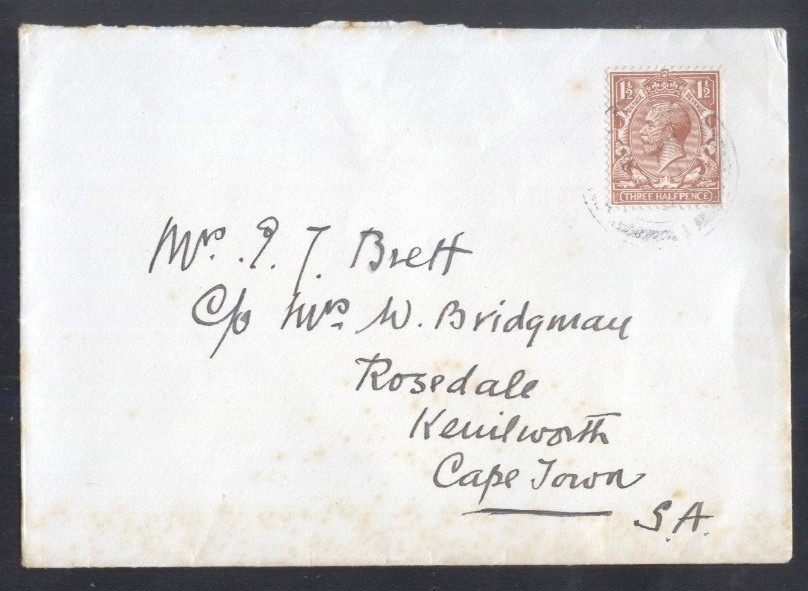 1½ 1½
POSTAGE REVENUE
THREE HALFPENCE
Mrs. P. T. Brett
C/o Mrs. W. Bridgman
Rosedale
Kenilworth
Cape Town
S.A.